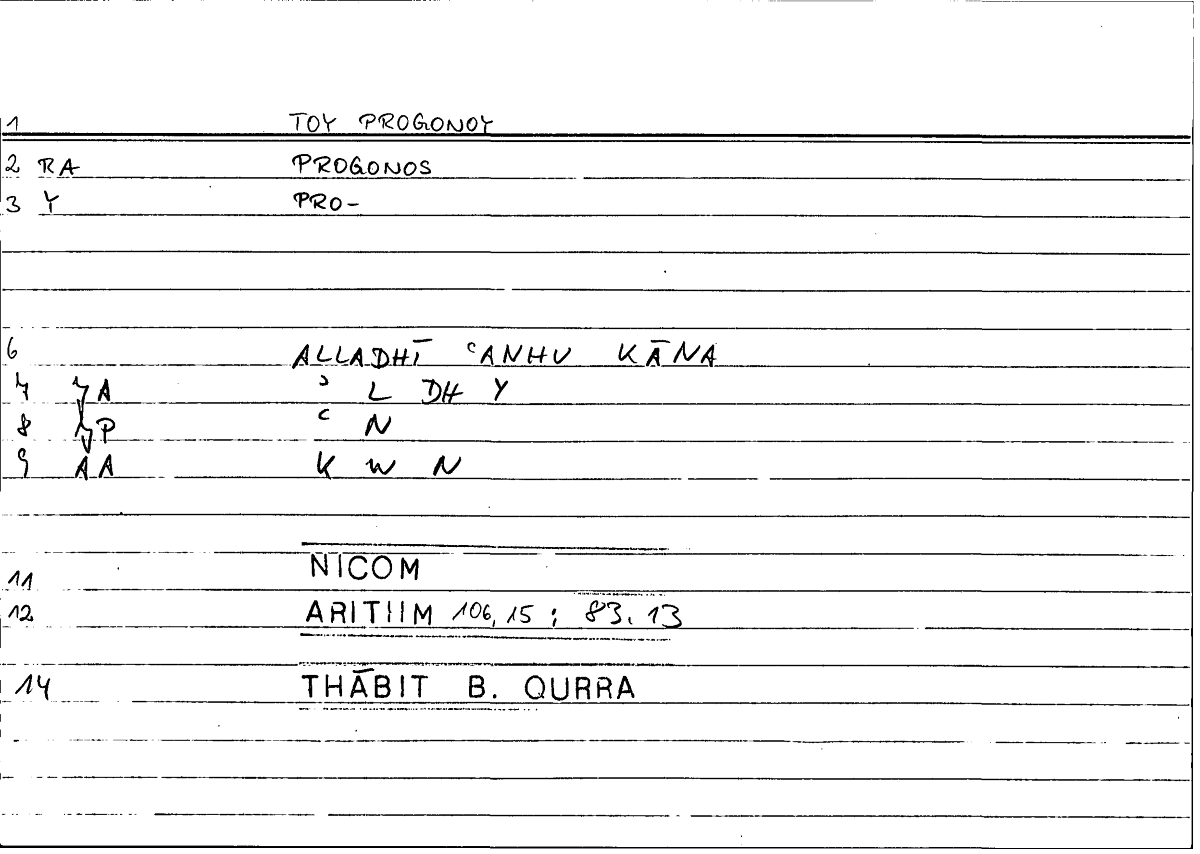 1 TOY PROGONOY
2 RA PROGONOS
3 Y PRO-
6 ALLADHĪ ʿANHU KĀNA
7 A ʾ L DH Y
8 P ʿ N
9 AA K W N
11 NICOM
12 ARITIIM 106,15 ; 83.13
14 THĀBIT B. QURRA